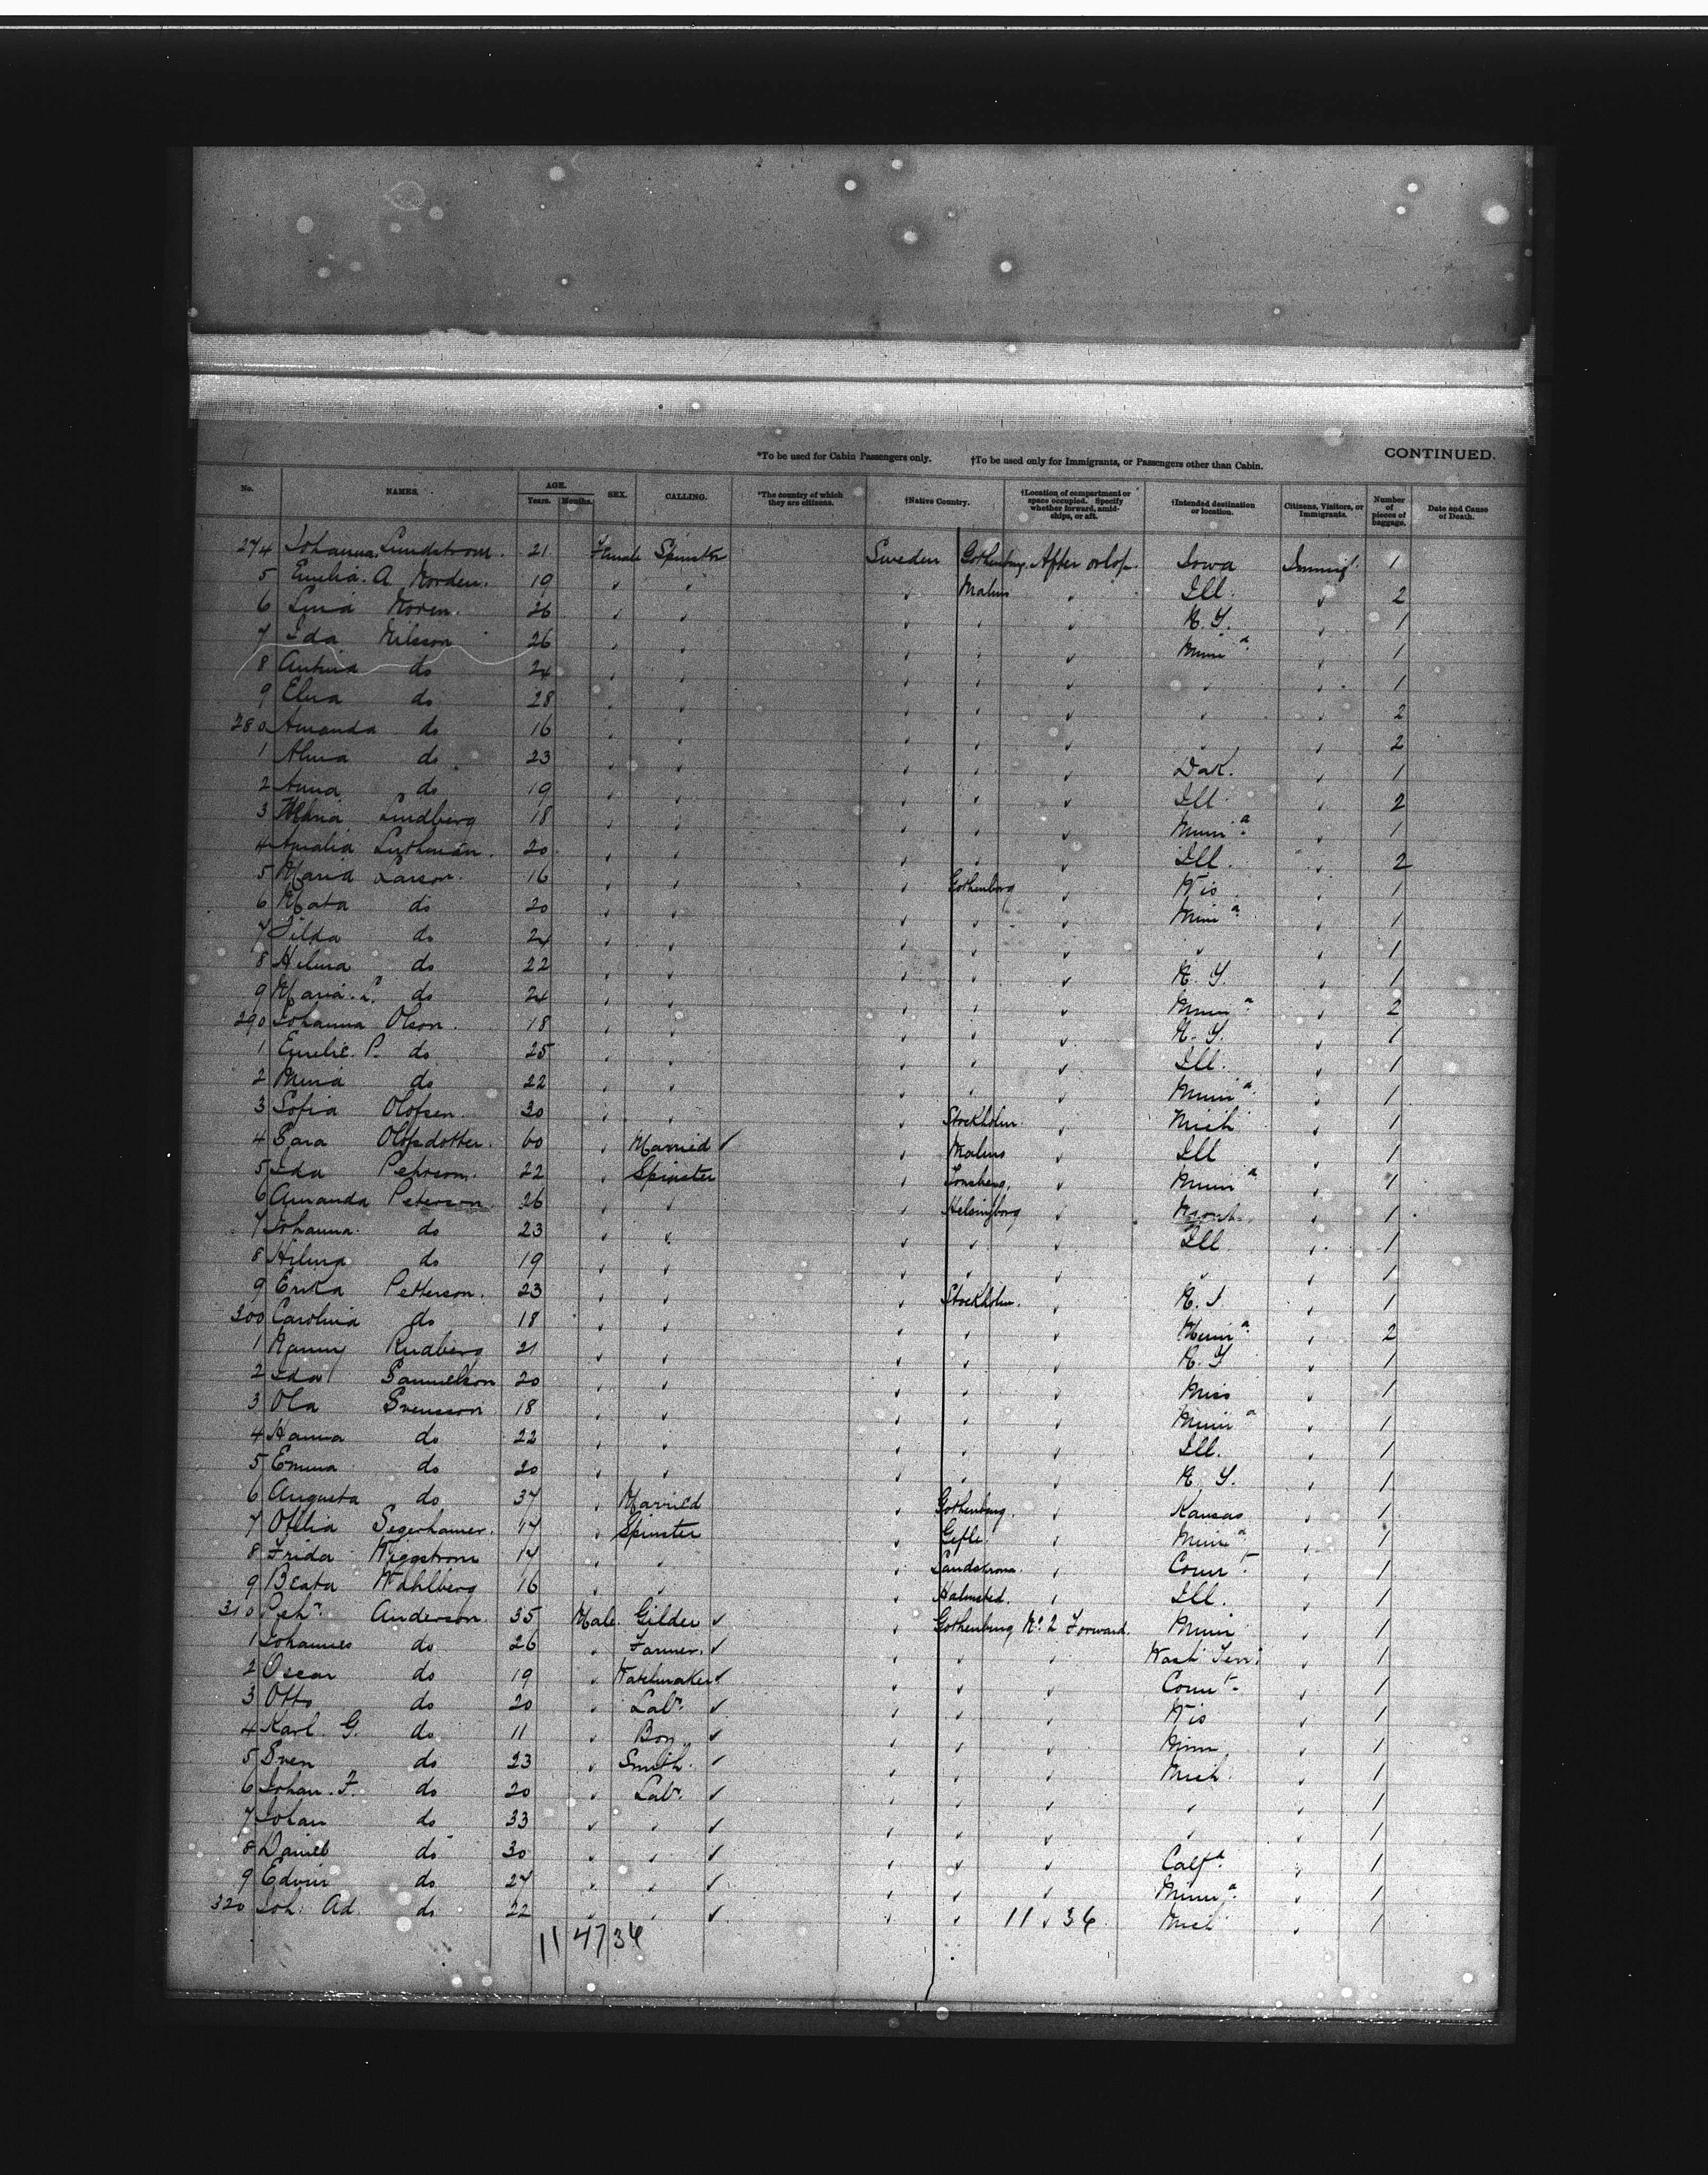 *To be used for Cabin Passengers only. †To be used only for Immigrants, or Passengers other than Cabin. CONTINUED.
No. NAMES. AGE. Years. Months. SEX. CALLING. *The country of which they are citizens. †Native Country. †Location of compartment or space occupied. Specify whether forward, amidships, or aft. †Intended destination or location. Citizens, Visitors, or Immigrants. Number of pieces of baggage. Date and Cause of Death.
274 Johanna Lundstrom. 21 Female Spinster Sweden Gothenburg. After orlop. Iowa Immigt. 1
5 Emelia. A Norden. 19 ✓ ✓ ✓ Malmo ✓ Ill. ✓ 2
6 Noren. 26 ✓ ✓ ✓ ✓ ✓ N.Y. ✓ 1
7 Ida Nilsson 26 ✓ ✓ ✓ ✓ ✓ Minna. ✓ 1
8 do 24 ✓ ✓ ✓ ✓ ✓ ✓ ✓ 1
9 Elna do 28 ✓ ✓ ✓ ✓ ✓ ✓ ✓ 2
280 Amanda do 16 ✓ ✓ ✓ ✓ ✓ ✓ ✓ 2
1 Alma do 23 ✓ ✓ ✓ ✓ ✓ Dak. ✓ 1
2 Anna do 19 ✓ ✓ ✓ ✓ ✓ Ill. ✓ 2
3 Maria Lindberg 18 ✓ ✓ ✓ ✓ ✓ Minna. ✓ 1
4 Amalia Luthman. 20 ✓ ✓ ✓ ✓ ✓ Ill. ✓ 2
5 Maria Larson. 16 ✓ ✓ ✓ Gothenborg ✓ Wis ✓ 1
6 do 20 ✓ ✓ ✓ ✓ ✓ Minna. ✓ 1
7 Tilda do 24 ✓ ✓ ✓ ✓ ✓ ✓ ✓ 1
8 Helma do 22 ✓ ✓ ✓ ✓ ✓ N.Y. ✓ 1
9 Maria. L. do 24 ✓ ✓ ✓ ✓ ✓ Minna. ✓ 2
290 Johanna Olson. 18 ✓ ✓ ✓ ✓ ✓ N.Y. ✓ 1
1 Emelie. P. do 25 ✓ ✓ ✓ ✓ ✓ Ill. ✓ 1
2 Mina do 22 ✓ ✓ ✓ ✓ ✓ Minna ✓ 1
3 Sofia Olofsen. 30 ✓ ✓ ✓ Stockholm. ✓ Mich ✓ 1
4 Sara Olofsdotter. 60 ✓ Married ✓ ✓ Malmo ✓ Ill ✓ 1
5 Ida Pehrson. 22 ✓ Spinster ✓ ✓ Minna ✓ 1
6 Amanda Peterson. 26 ✓ ✓ ✓ Helsingborg ✓ ✓ 1
7 Johanna. do 23 ✓ ✓ ✓ ✓ ✓ Ill ✓ 1
8 Hilma do 19 ✓ ✓ ✓ ✓ ✓ ✓ ✓ 1
9 Erika Petterson. 23 ✓ ✓ ✓ Stockholm. ✓ ✓ 1
300 Carolina do 18 ✓ ✓ ✓ ✓ ✓ Minna. ✓ 2
1 Nanny Rudberg 21 ✓ ✓ ✓ ✓ ✓ N.Y ✓ 1
2 Ida Samuelson 20 ✓ ✓ ✓ ✓ ✓ Miss ✓ 1
3 Ola Svensson 18 ✓ ✓ ✓ ✓ ✓ Minna ✓ 1
4 Hanna do 22 ✓ ✓ ✓ ✓ ✓ Ill. ✓ 1
5 Emma do 20 ✓ ✓ ✓ ✓ ✓ N.Y. ✓ 1
6 Augusta do 37 ✓ Married ✓ Gothenburg. ✓ Kansas ✓ 1
7 Otilia Segerhamer. 17 ✓ Spinster ✓ Gefle. ✓ Minna ✓ 1
8 Frida Wiggstrom 14 ✓ ✓ ✓ Landskrona. ✓ Connt ✓ 1
9 Beata Wahlberg 16 ✓ ✓ ✓ Halmsted. ✓ Ill. ✓ 1
310 Pehr. Anderson 35 Male. Gilder ✓ ✓ Gothenburg No. 2 Forward. Minn ✓ 1
1 Johannes do 26 ✓ Farmer. ✓ ✓ ✓ ✓ Wash Terr. ✓ 1
2 Oscar do 19 ✓ Watchmaker ✓ ✓ ✓ ✓ Connt. ✓ 1
3 Otto do 20 ✓ Labr. ✓ ✓ ✓ ✓ Wis ✓ 1
4 Karl G. do 11 ✓ Boy ✓ ✓ ✓ ✓ Minn ✓ 1
5 Sven do 23 ✓ Smith. ✓ ✓ ✓ ✓ Mich ✓ 1
6 Johan. F. do 20 ✓ Labr. ✓ ✓ ✓ ✓ ✓ ✓ 1
7 Johan do 33 ✓ ✓ ✓ ✓ ✓ ✓ ✓ ✓ 1
8 Daniel do 30 ✓ ✓ ✓ ✓ ✓ ✓ Calfa. ✓ 1
9 Edvin do 24 ✓ ✓ ✓ ✓ ✓ ✓ Minna. ✓ 1
320 Joh. Ad do 22 ✓ ✓ ✓ ✓ ✓ 11 ✓ 36 Mich ✓ 1
11 47 36